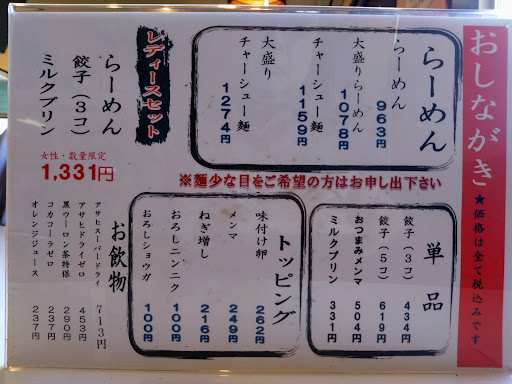 おしながき
★価格は全て税込みです
らーめん
らーめん 963円
大盛りらーめん 1078円
チャーシュー麺 1159円
大盛りチャーシュー麺 1274円
レディースセット
らーめん
餃子(3コ)
ミルクプリン
女性・数量限定
1,331円
※麺少な目をご希望の方はお申し出下さい
単品
餃子(3コ) 434円
餃子(5コ) 619円
おつまみメンマ 504円
ミルクプリン 331円
トッピング
味付け卵 262円
メンマ 249円
ねぎ増し 216円
おろしニンニク 100円
おろしショウガ 100円
お飲物
アサヒスーパードライ 713円
アサヒドライゼロ 453円
黒ウーロン茶特保 290円
コカコーラゼロ 237円
オレンジジュース 237円